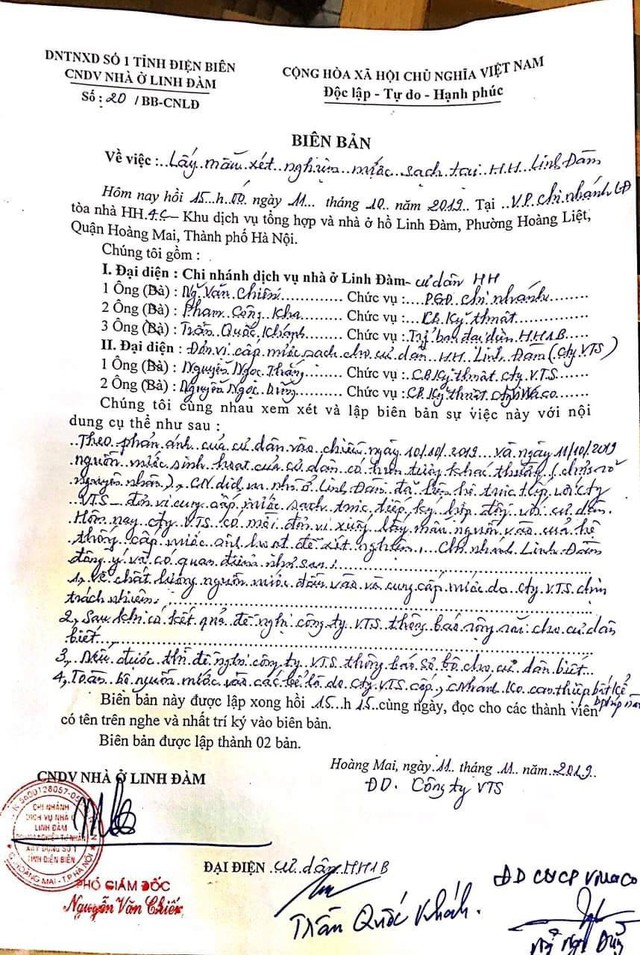 DNTNXD SỐ 1 TỈNH ĐIỆN BIÊN
CNDV NHÀ Ở LINH ĐÀM
Số: 20 / BB-CNLĐ
CỘNG HÒA XÃ HỘI CHỦ NGHĨA VIỆT NAM
Độc lập - Tự do - Hạnh phúc
BIÊN BẢN
Về việc: Lấy mẫu xét nghiệm nước sạch tại HH Linh Đàm
Hôm nay hồi 15 h 00 ngày 11 tháng 10 năm 2019 Tại VP chi nhánh LĐ
tòa nhà HH 4C – Khu dịch vụ tổng hợp và nhà ở hồ Linh Đàm, Phường Hoàng Liệt,
Quận Hoàng Mai, Thành phố Hà Nội.
Chúng tôi gồm :
I. Đại diện : Chi nhánh dịch vụ nhà ở Linh Đàm - cư dân HH
1 Ông (Bà) : Ng Văn Chiến Chức vụ : PGĐ chi nhánh
2 Ông (Bà) : Phạm Công Kha Chức vụ : CB Kỹ thuật
3 Ông (Bà) : Trần Quốc Khánh Chức vụ : Trg ban đại diện HH1B
II. Đại diện : Đơn vị cấp nước sạch cho cư dân HH Linh Đàm (cty VTS)
1 Ông (Bà) : Nguyễn Ngọc Thắng Chức vụ : CB Kỹ thuật cty VTS
2 Ông (Bà) : Nguyễn Ngọc Dũng Chức vụ : CB Kỹ thuật cty
Chúng tôi cùng nhau xem xét và lập biên bản sự việc này với nội
dung cụ thể như sau :
Theo phản ánh của cư dân vào chiều ngày 10/10/2019 và ngày 11/10/2019
nguồn nước sinh hoạt của cư dân có hiện tượng khác thường (chưa rõ
nguyên nhân), CN dịch vụ nhà ở Linh Đàm đã liên hệ trực tiếp với cty
VTS – đơn vị cung cấp nước sạch trực tiếp ký hợp đồng với cư dân.
Hôm nay cty VTS có mời đơn vị xuống lấy mẫu nguồn vào của hệ
thống cấp nước sinh hoạt để xét nghiệm. Chi nhánh Linh Đàm
đồng ý và có quan điểm như sau:
1, Về chất lượng nguồn nước đầu vào và cung cấp nước do cty VTS chịu
trách nhiệm.
2, Sau khi có kết quả đề nghị công ty VTS thông báo rộng rãi cho cư dân
biết.
3, Nếu được thì đề nghị công ty VTS thông báo sơ bộ cho cư dân biết.
4, Toàn bộ nguồn nước vào các bể là do cty VTS cấp, CNhánh ko can thiệp bất kể
Biên bản này được lập xong hồi 15 h 15 cùng ngày, đọc cho các thành viên
có tên trên nghe và nhất trí ký vào biên bản.
Biên bản được lập thành 02 bản.
Hoàng Mai, ngày 11 tháng 11 năm 2019
CNDV NHÀ Ở LINH ĐÀM
ĐD. Công ty VTS
CHI NHÁNH
DỊCH VỤ NHÀ Ở
LINH ĐÀM
XÂY DỰNG SỐ 1
TỈNH ĐIỆN BIÊN
Q. HOÀNG MAI - T.P HÀ NỘI
PHÓ GIÁM ĐỐC
Nguyễn Văn Chiến
ĐẠI DIỆN cư dân HH1B
Trần Quốc Khánh.